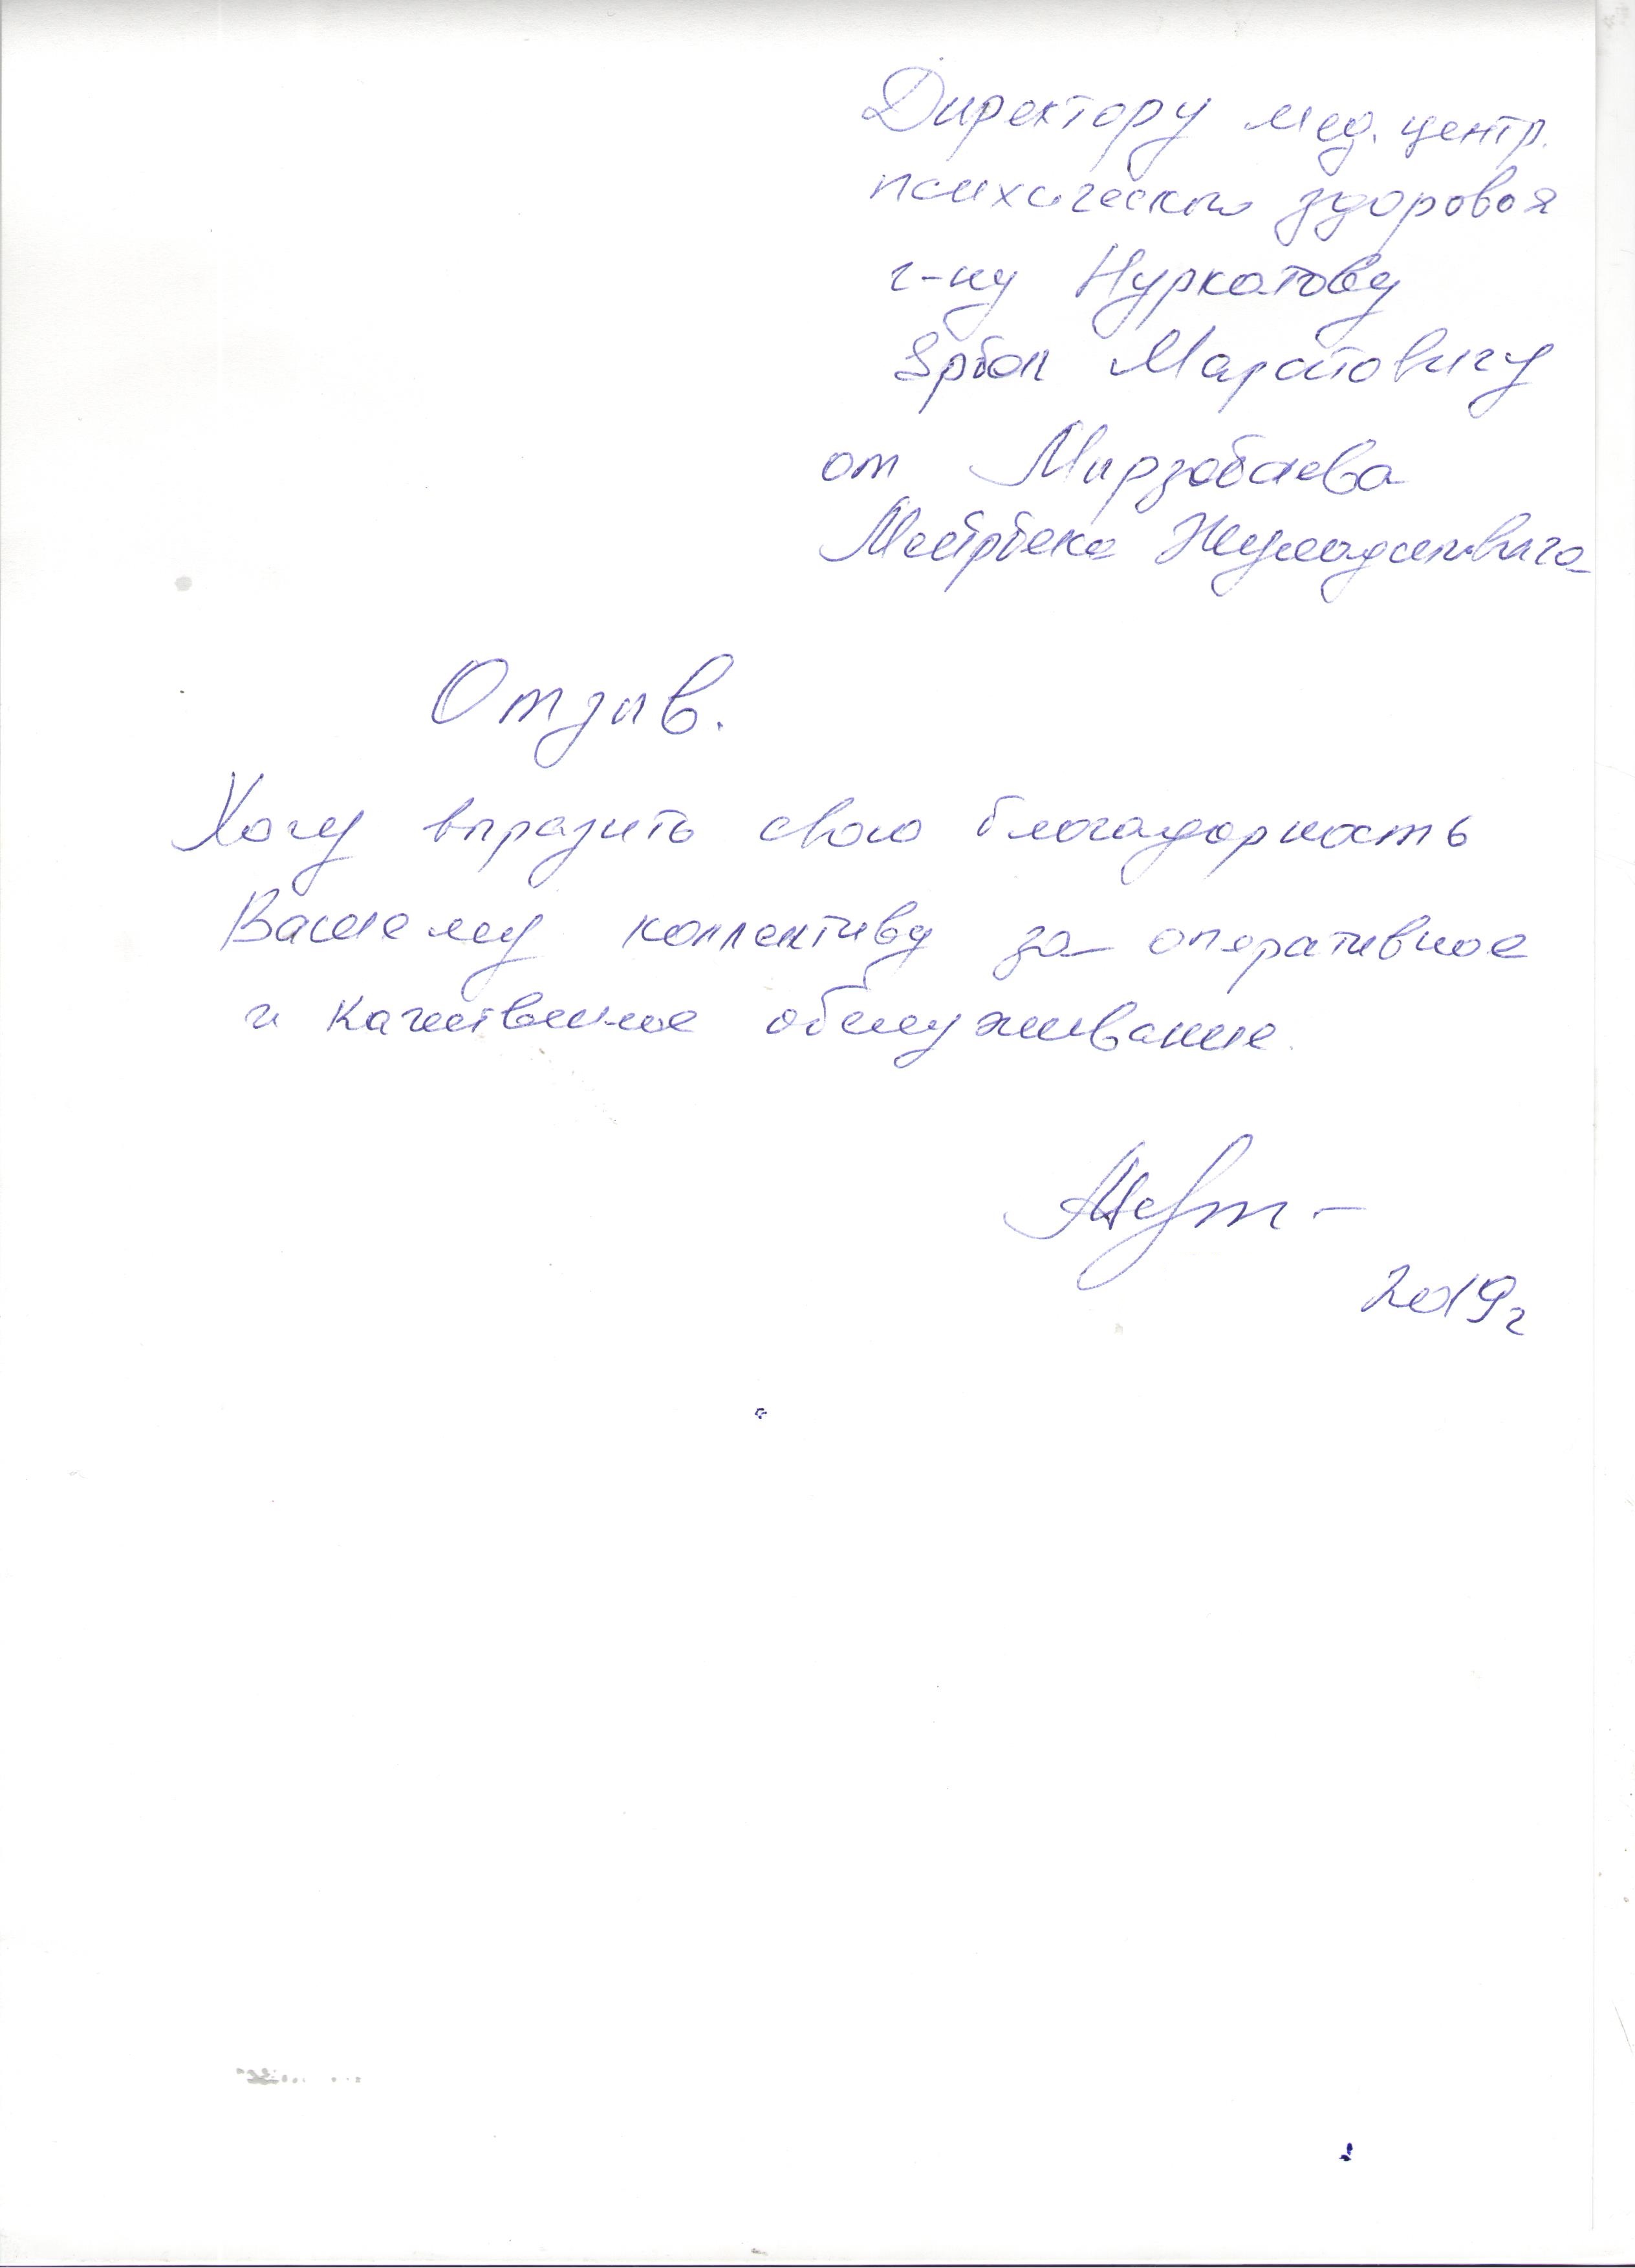 Директору мед. центр.
психического здоровья
г-ну Нуркатову
Ербол Маратовичу
от Мирзабаева
Мейрбека Жумадиловича
Отзыв.
Хочу выразить свою благодарность
Вашему коллективу за оперативное
и качественное обслуживание.
2019г